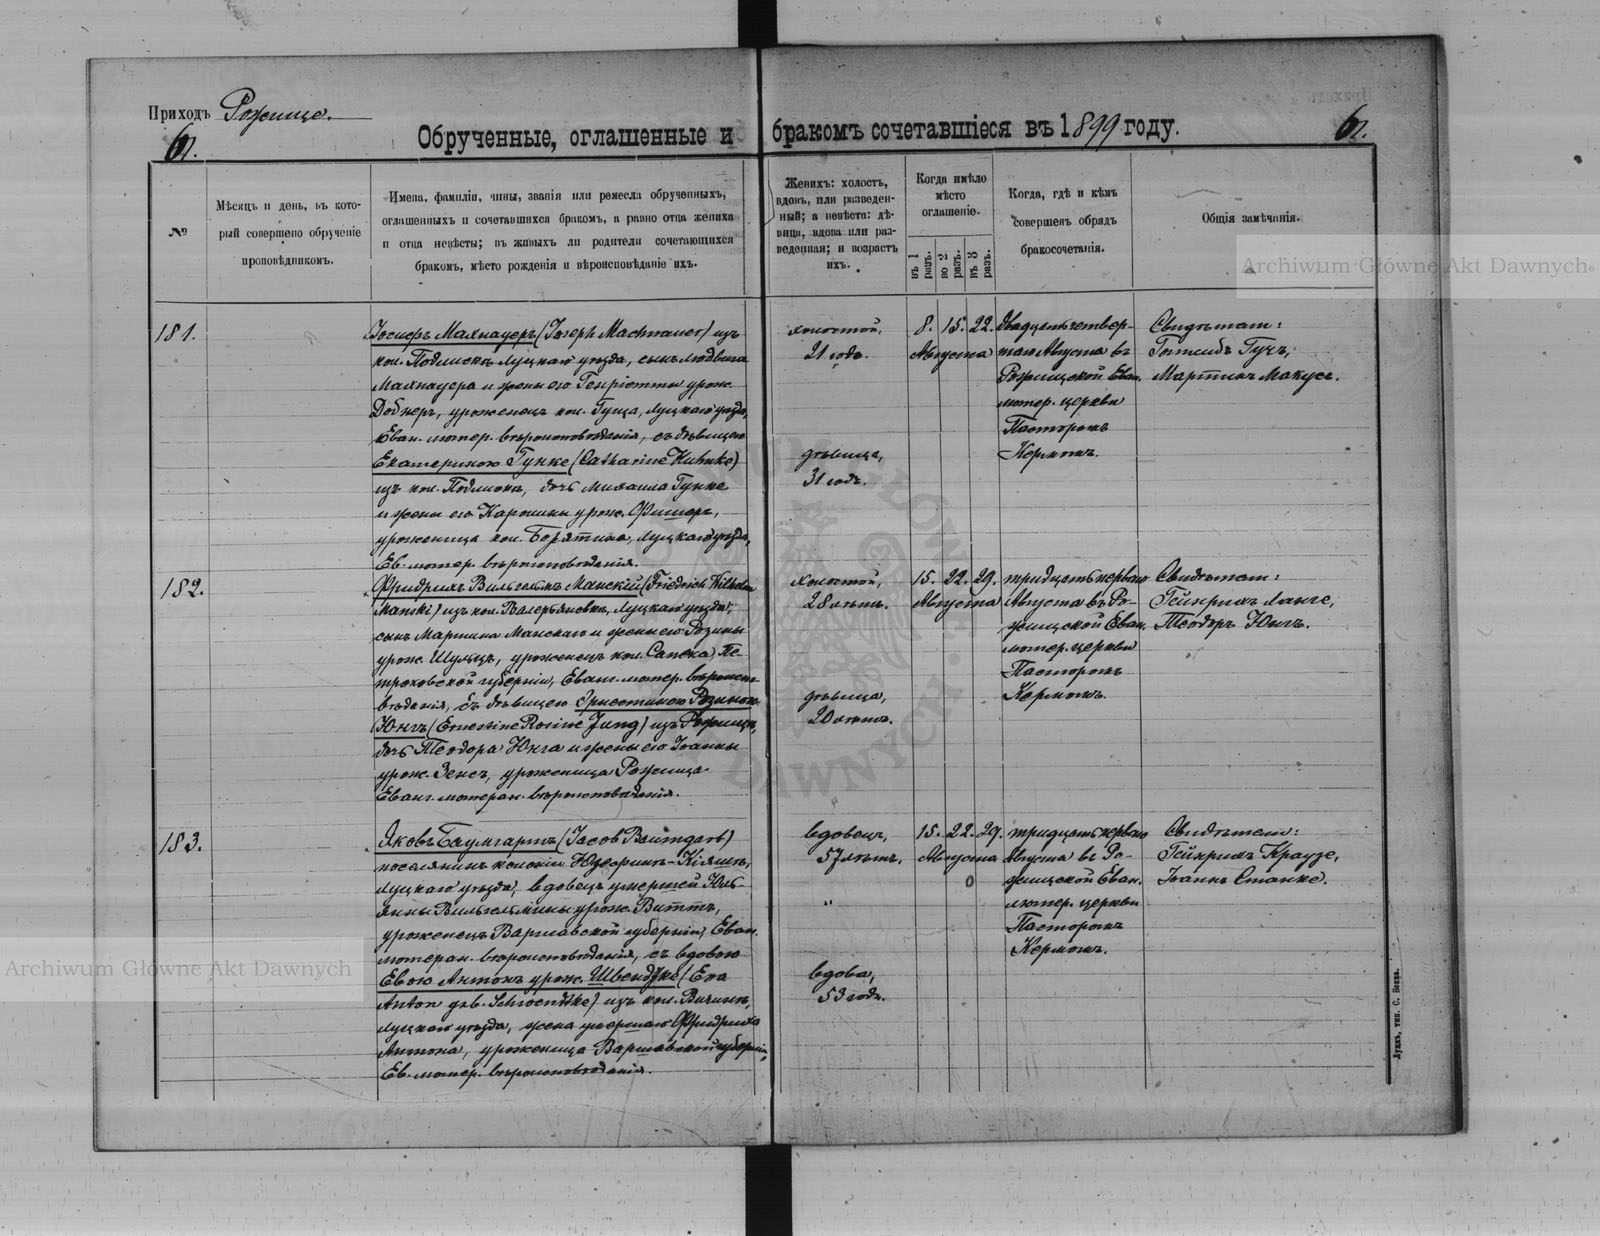 Приходъ Рожище.
61.
Обрученные, оглашенные и бракомъ сочетавшіеся въ 1899 году.
61.
№
Мѣсяцъ и день, въ кото-
рый совершено обрученіе
проповѣдникомъ.
Имена, фамиліи, чины, званія или ремесла обрученныхъ,
оглашенныхъ и сочетавшихся бракомъ, а равно отца жениха
и отца невѣсты; въ живыхъ ли родители сочетающихся
бракомъ, мѣсто рожденія и вѣроисповѣданіе ихъ.
Женихъ: холостъ,
вдовъ, или разведен-
ный; а невѣста: дѣ-
вица, вдова или раз-
веденная; и возрастъ
ихъ.
Когда имѣло
мѣсто
оглашеніе.
въ 1 разъ.
во 2 разъ.
въ 3 разъ.
Когда, гдѣ и кѣмъ
совершенъ обрядъ
бракосочетанія.
Общія замѣчанія.
Archiwum Główne Akt Dawnych
181.
Іосифъ Махнауеръ (Joseph Machnauer) изъ
кол. Луцкаго уѣзда, сынъ Людвига
Махнауера и жены его Генріетты урож.
Добнеръ, уроженецъ кол. Гуща, Луцкаго уѣзда,
Еван. лютер. вѣроисповѣданія, съ дѣвицею
Екатериною Гунке (Catharine Huhnke)
изъ кол. дочь Михаила Гунке
и жены его Каролины урож. Фишеръ,
уроженица кол. Борятина, Луцкаго уѣзда,
Ев. лютер. вѣроисповѣданія.
холостой,
21 годъ.
дѣвица,
31 годъ.
8. 15. 22.
Августа
двадцать четвер-
таго Августа въ
Рожищской Еван.
лютер. церкви
Пасторомъ
Кермомъ.
Свидѣтели:
Готлибъ Гучъ,
Мартинъ Макусъ.
182.
Фридрихъ Вильгельмъ Манскій (Friedrich Wilhelm
Manski) изъ кол. Валерьяновки, Луцкаго уѣзда,
сынъ Мартина Манскаго и жены его Розины
урож. Шульцъ, уроженецъ кол. Санска Пе-
троковской губерніи, Еванг. лютер. вѣроиспо-
вѣданія, съ дѣвицею Эрнестиною Розиною
Юнгъ (Ernestine Rosine Jung) изъ Рожища,
дочь Теодора Юнга и жены его Іоанны
урож. Зенсъ, уроженица Рожища
Еванг. лютеран. вѣроисповѣданія.
холостой,
28 лѣтъ.
дѣвица,
20 лѣтъ.
15. 22. 29.
Августа
тридцать перваго
Августа въ Ро-
жищской Еван.
лютер. церкви
Пасторомъ
Кермомъ.
Свидѣтели:
Гейнрихъ Ланге,
Теодоръ Юнгъ.
183.
Яковъ Баумгартъ (Jacob Baumgart)
поселянинъ колоніи
Луцкаго уѣзда, вдовецъ умершей Юль-
янны Вильгельмины урож. Виттъ,
уроженецъ Варшавской губерніи, Еван.
лютеран. вѣроисповѣданія, съ вдовою
Евою Антонъ урож. Швендтке (Eva
Anton geb. Schwendtke) изъ кол.
Луцкаго уѣзда, жена умершаго Фридриха
Антона, уроженица Варшавской губерніи,
Ев. лютер. вѣроисповѣданія.
вдовецъ,
57 лѣтъ.
"
вдова,
53 года.
15. 22. 29.
Августа
тридцать перваго
Августа въ Ро-
жищской Еван.
лютер. церкви
Пасторомъ
Кермомъ.
Свидѣтели:
Гейнрихъ Краузе,
Іоганъ Станке.
Archiwum Główne Akt Dawnych
Луцкъ, тип. С. Бонка.